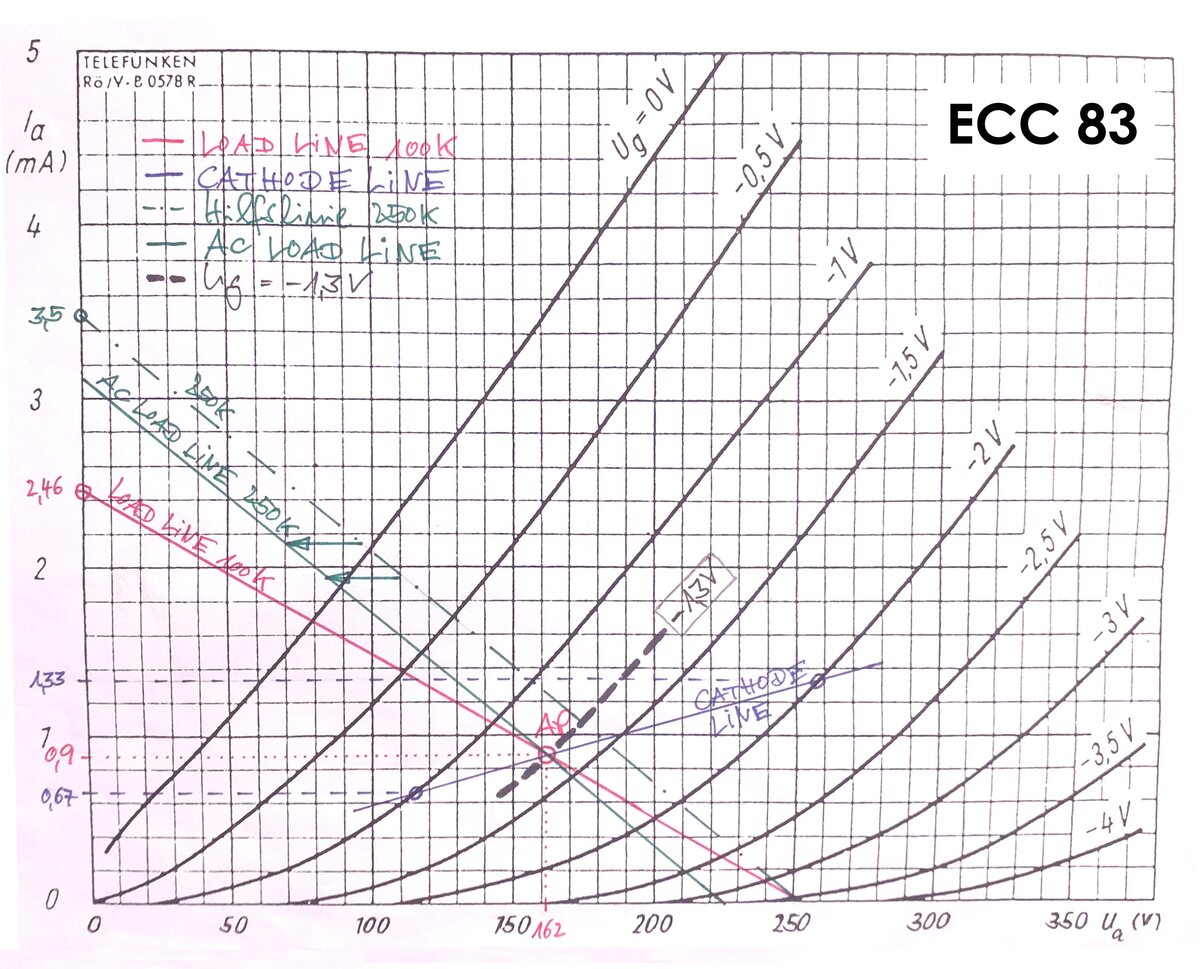 TELEFUNKEN
Rö/V-B 0578 R
ECC 83
Ia
(mA)
5
4
3,5
3
2,46
2
1,33
1
0,9
0,67
0
LOAD LINE 100K
CATHODE LINE
Hilfslinie 250K
AC LOAD LINE
Ug = -1,3V
Ug = 0V
-0,5V
-1V
-1,5V
-2V
-2,5V
-3V
-3,5V
-4V
250K
AC LOAD LINE 250K
LOAD LINE 100K
-1,3V
AP
CATHODE
LINE
0 50 100 150 162 200 250 300 350 Ua (V)